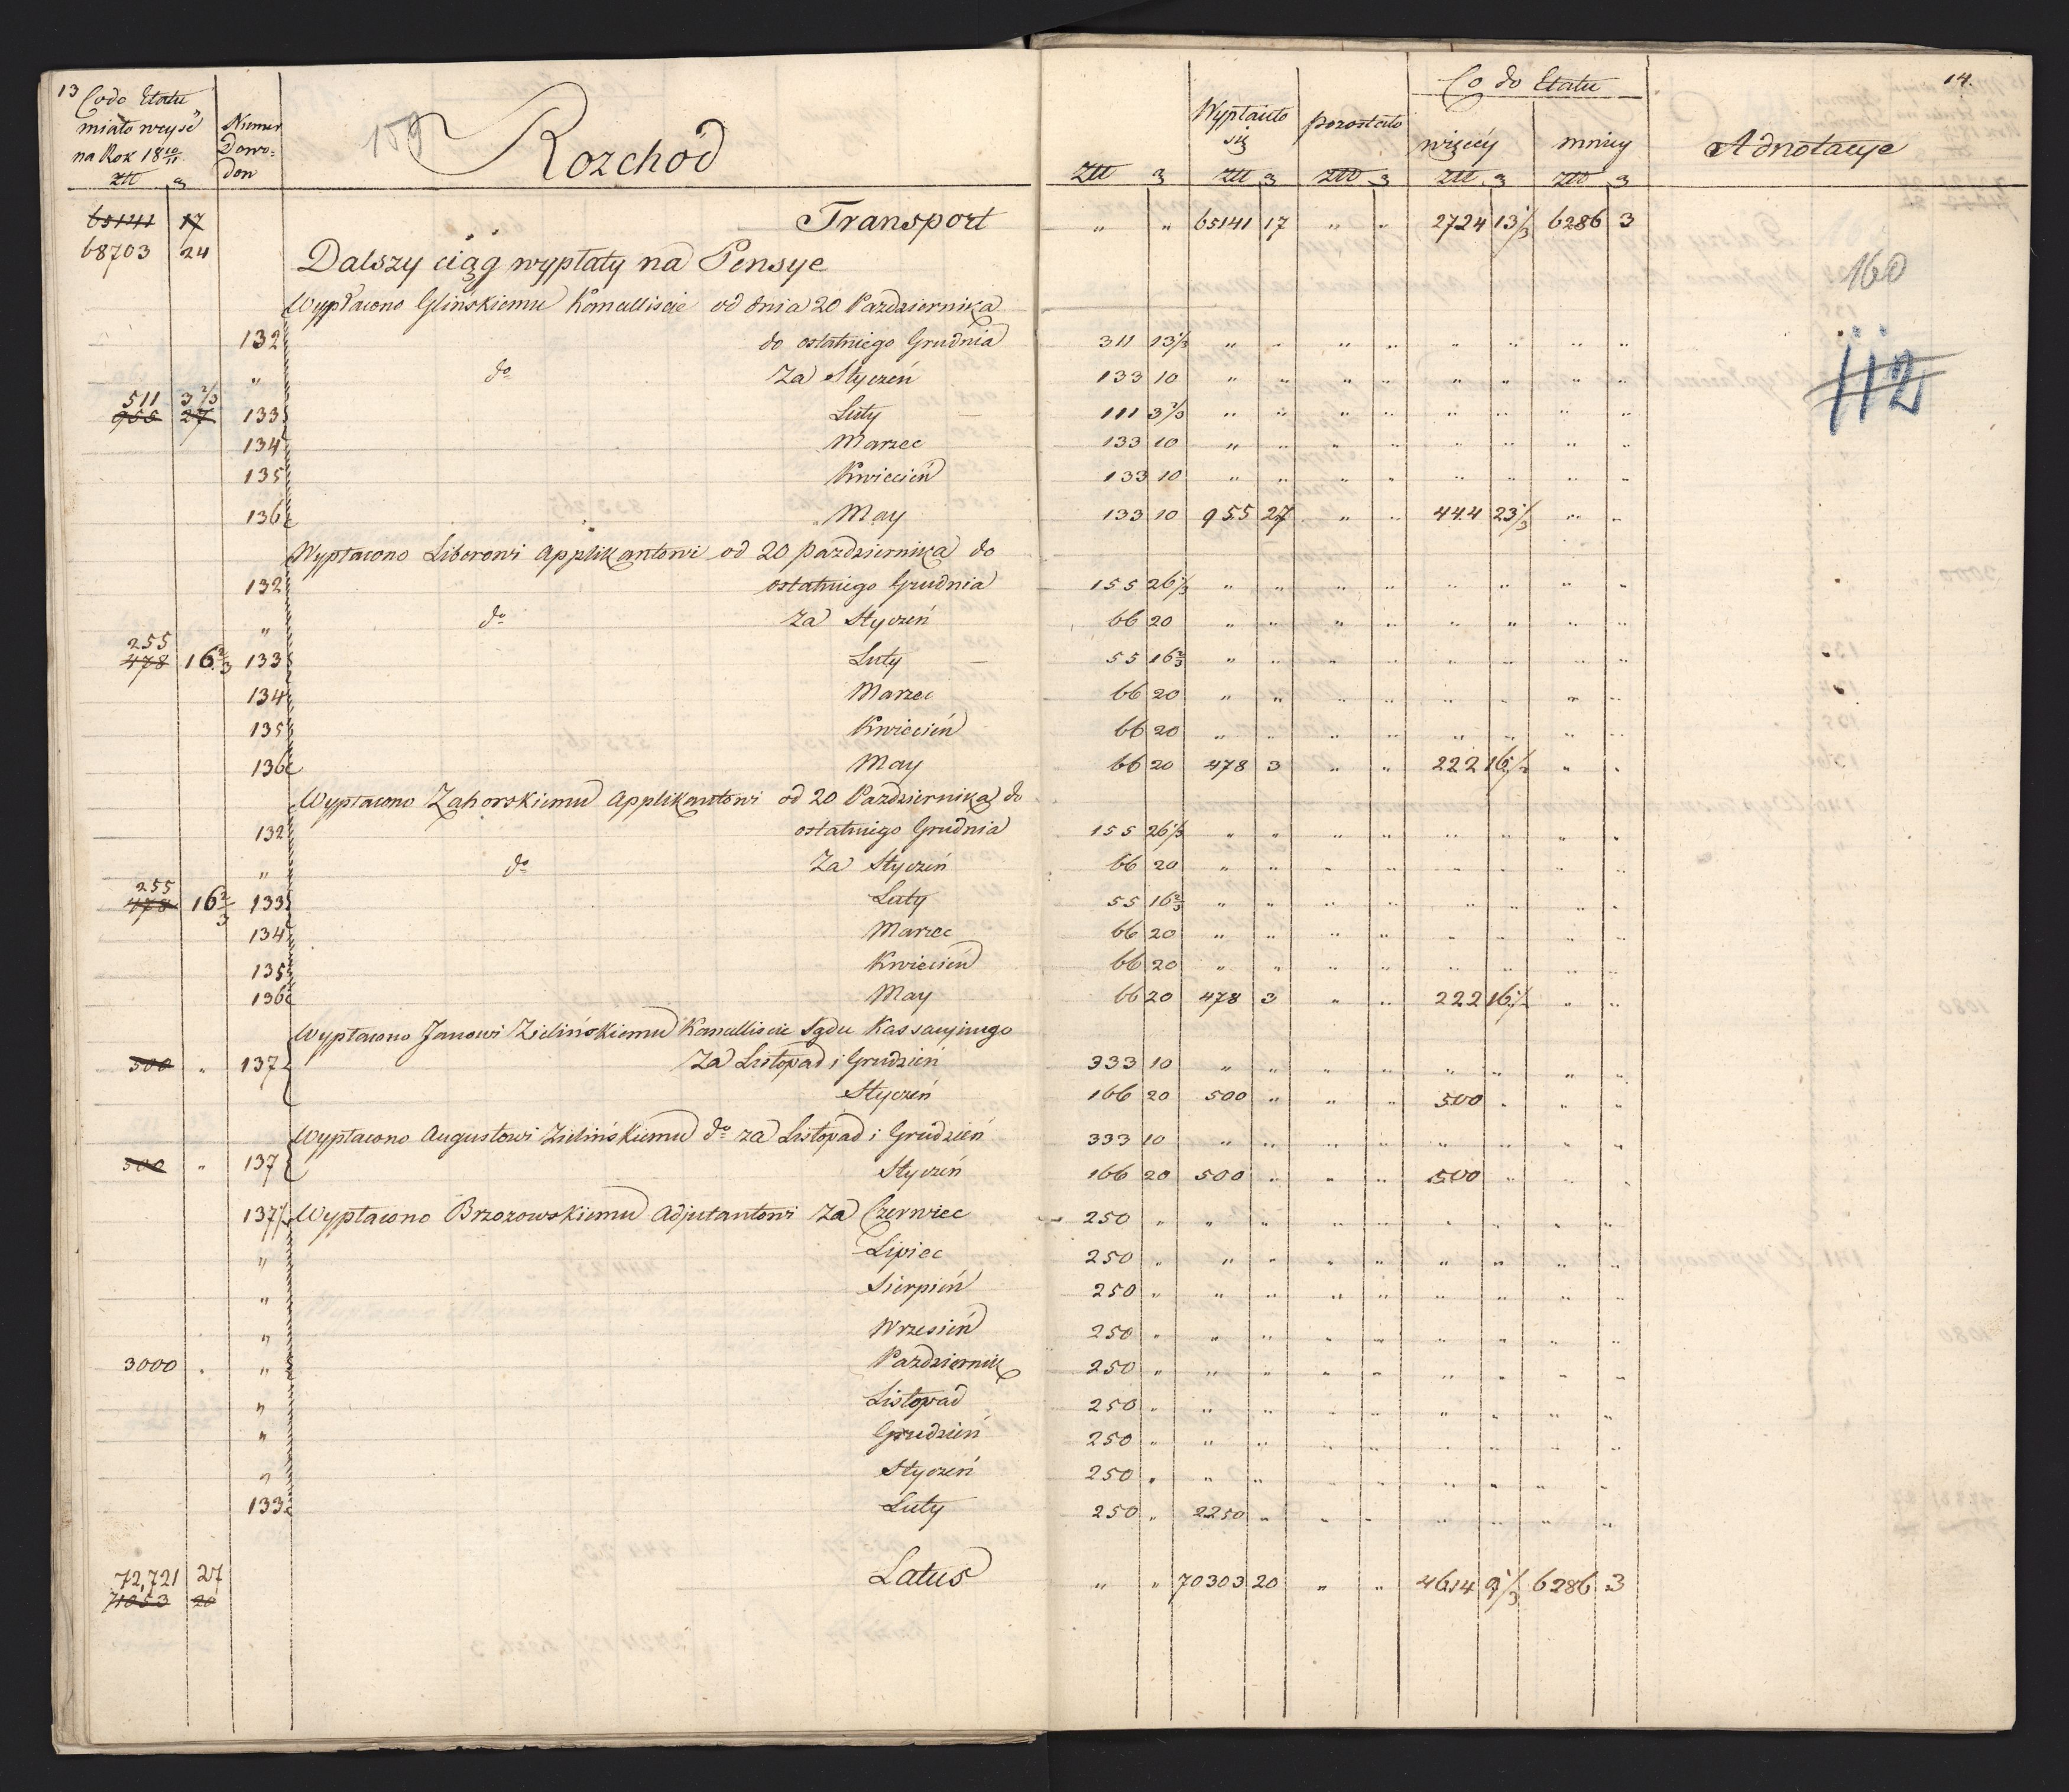 13
Codo Etatu
miało wyyść
na Rok 18 10/11
Złł g
Numer
Dowo=
dou
159
Rozchód
Złł g
Wypłaciło
się
Złł g
pozostało
Złł g
Co do Etatu
więcéy
Złł g
mniey
Złł g
Adnotacye
14.
65141 17 Transport " " 65141 17 " " 2724 13 1/3 6286 3
68703 24
160
Dalszy ciąg wypłaty na Pensye
Wypłacono Glinskiemu Kancelliscie od dnia 20 Pazdziernika
132 do ostatniego Grudnia 311 13 1/3 " " " " " " " "
112
" do Za Styczeń 133 10 " " " " " " " "
511 3 2/3
955 27 133 Luty 111 3 2/3 " " " " " " " "
134 Marzec 133 10 " " " " " " " "
135 Kwiecień 133 10 " " " " " " " "
136 May 133 10 955 27 " " 444 23 1/3 " "
Wypłacono Liborowi Applikantowi od 20 pazdziernika do
132 ostatniego Grudnia 155 26 1/3 " " " " " " " "
" do Za Styczeń 66 20 " " " " " " " "
255
478 16 2/3 133 Luty 55 16 2/3 " " " " " " " "
134 Marzec 66 20 " " " " " " " "
135 Kwiecień 66 20 " " " " " " " "
136 May 66 20 478 3 " " 222 16 1/3 " "
Wypłacono Zahorskiemu Applikantowi od 20 Pazdziernika do
132 ostatniego Grudnia 155 26 1/3 " " " " " " " "
" do Za Styczeń 66 20 " " " " " " " "
255
478 16 2/3 133 Luty 55 16 2/3 " " " " " " " "
134 Marzec 66 20 " " " " " " " "
135 Kwiecień 66 20 " " " " " " " "
136 May 66 20 478 3 " " 222 16 1/3 " "
Wypłacono Janowi Zielińskiemu Kancelliscie Sądu Kassacyinego
500 " 137 Za Listopad i Grudzień 333 10 " " " " " " " "
Styczeń 166 20 500 " " " 500 " " "
Wypłacono Augustowi Zielińskiemu do za Listopad i Grudzień 333 10 " " " " " " " "
500 " 137 Styczeń 166 20 500 " " " 500 " " "
137 Wypłacono Brzozowskiemu Adjutantowi za Czerwiec 250 " " " " " " " " "
" Lipiec 250 " " " " " " " " "
" Sierpień 250 " " " " " " " " "
" Wrzesień 250 " " " " " " " " "
3000 " " Pazdziernik 250 " " " " " " " " "
" Listopad 250 " " " " " " " " "
" Grudzień 250 " " " " " " " " "
" Styczeń 250 " " " " " " " " "
133 Luty 250 " 2250 " " " " " " "
72,721 27 Latus " " 70303 20 " " 4614 9 1/3 6286 3
71053 20